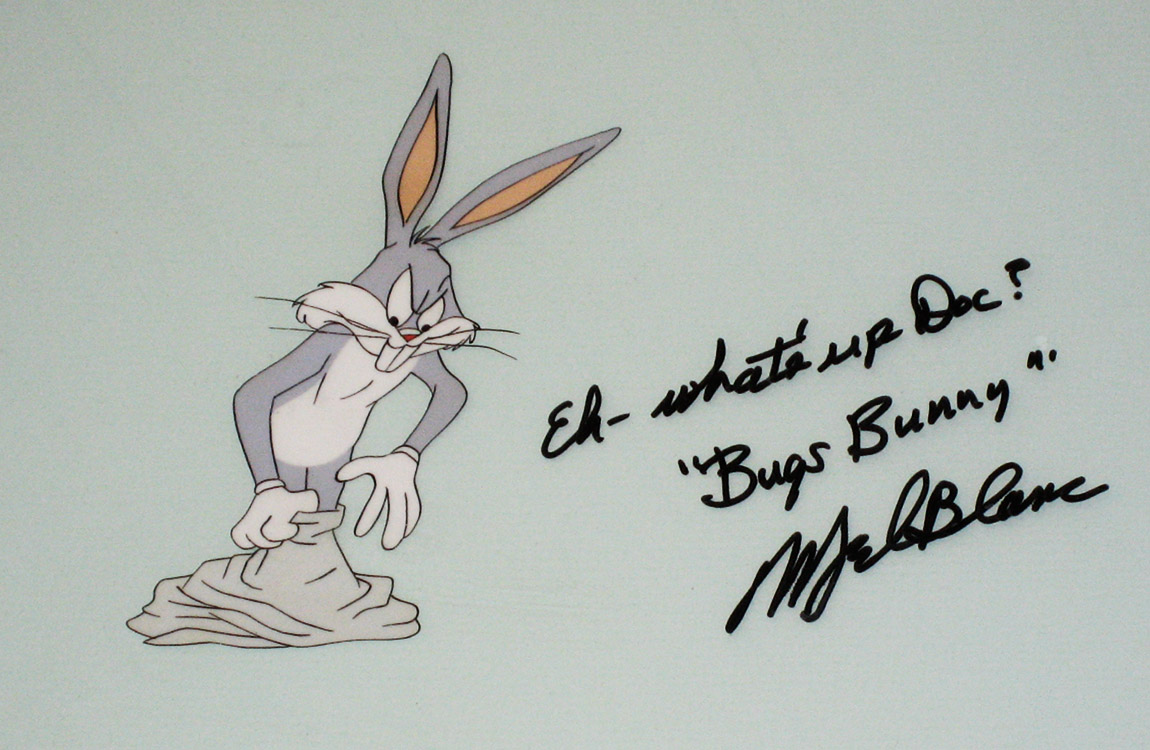 Eh- what's up Doc?
"Bugs Bunny"
Mel Blanc